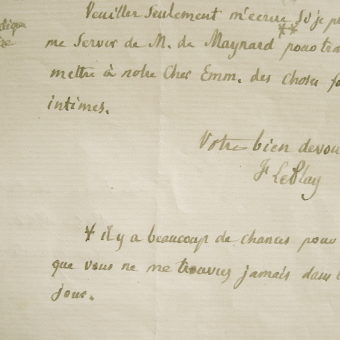 Veuillez seulement m'écrire si je p
me servir de M. de Maynard ** pour tra
mettre à notre Cher Emm. des choses
intimes.
Votre bien dévou
F LePlay
* il y a beaucoup de chances pour
que vous ne me trouviez jamais dans
jour.